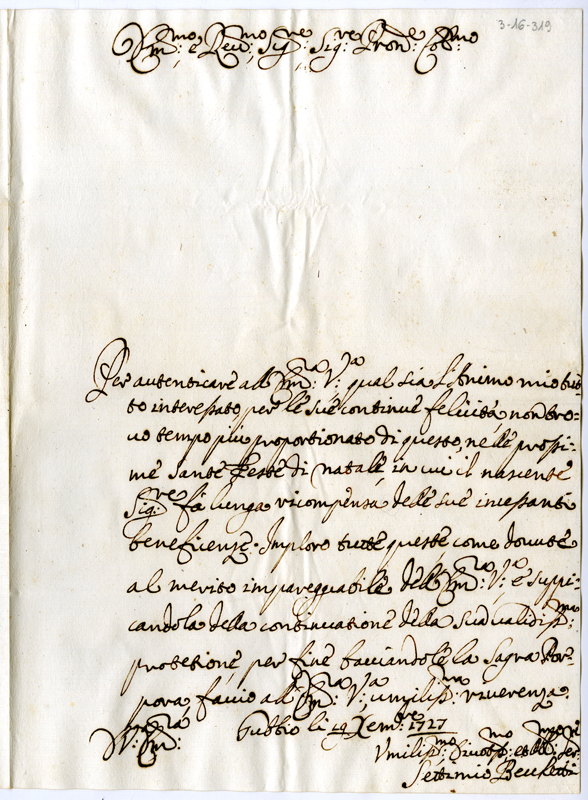 3-16-319
Em:mo e Reu:mo Sig:re Sig:re Pron:e Col:mo
Per autenticare all'Em:za V:ra qual sia l'Animo mio tut-
to interessato per le sue continue felicità, non tro-
uo tempo più proportionato di questo, nelle prossi-
me sante Feste di Natale, in cui il nascente
Sig:re fà lunga ricompensa delle sue incessanti
beneficenze. Imploro tutte queste, come douute
al merito impareggiabile dell'Em:za V:ra, e suppli-
candola della continuatione della sua ualidiss:ma
protetione, per fine bacciandole la Sagra Por-
pora, faccio all'Em:za V:ra umiliss:ma riuerenza.
Gubbio li 19 Xem:re 1727
D V: Em:za
Vmiliss:mo Diuotiss:mo et obl:mo Ser:re
Settimio Becchetti